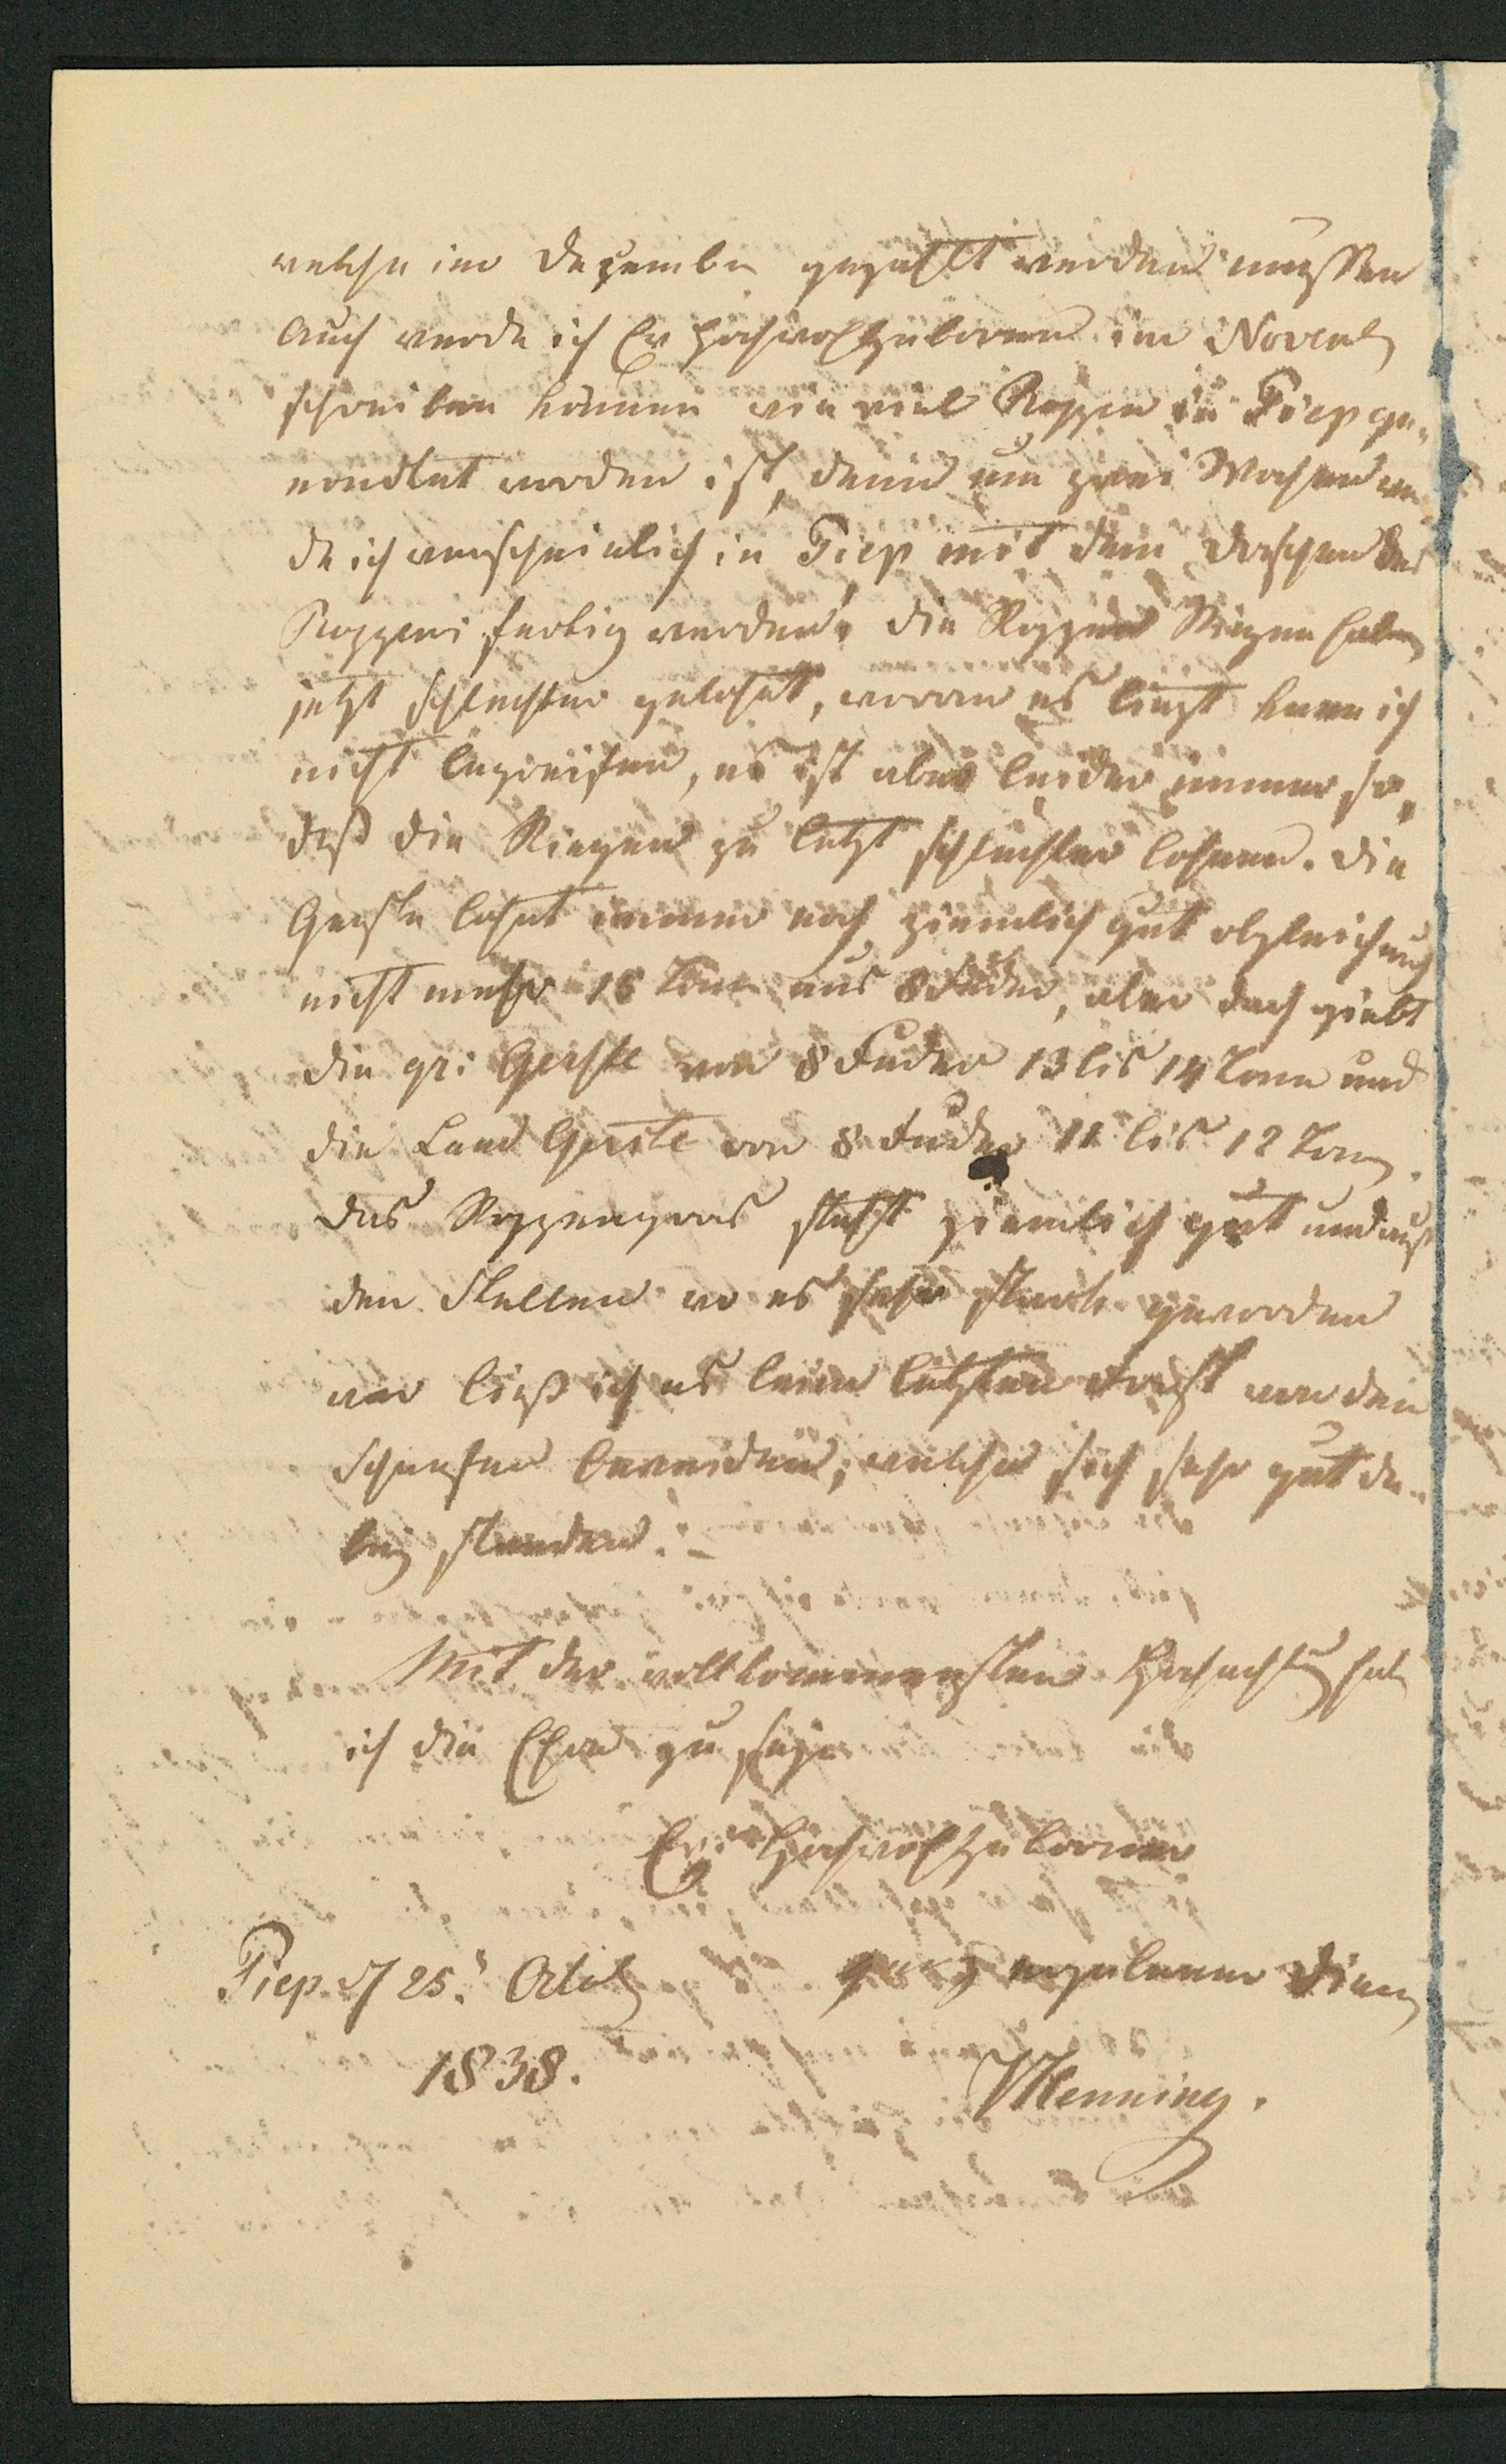 welche im Dezember gezahlt werden müssen
Auch werde ich Ew Hochwohlgeboren im Novemb
schreiben können wie viel Roggen in Piep ge„
erndtet worden ist, denn um zwei Wochen wer„
de ich warscheinlich in Piep mit dem Dreschen des
Roggens fertig werden. Die Roggen Riegen haben
jetzt schlechter gelohnt, woran es liegt kann ich
nicht begreifen, es ist aber leider immer so,
daß die Riegen zu letzt schlechter lohnen. Die
Gerste lohnt immer noch ziemlich gut obgleich auch
nicht mehr 16 Tonn aus 8 Fuder, aber doch giebt
die gr: Gerste von 8 Fuder 13 bis 14 Tonn und
die Land Gerste von 8 Fuder 11 bis 12 Tonn.
Das Roggengras steht ziemlich gut und auf
den Stellen wo es sehr stark geworden
war ließ ich es beim letzten Frost von den
Schaafen beweiden, welche sich sehr gut da„
bey standen. –
Mit der vollkommensten Hochachtung habe
ich die Ehre zu seyn
Ew. Hochwohlgeboren
Piep d 25. Octob
ganz ergebener Diener
1838.
Henning.